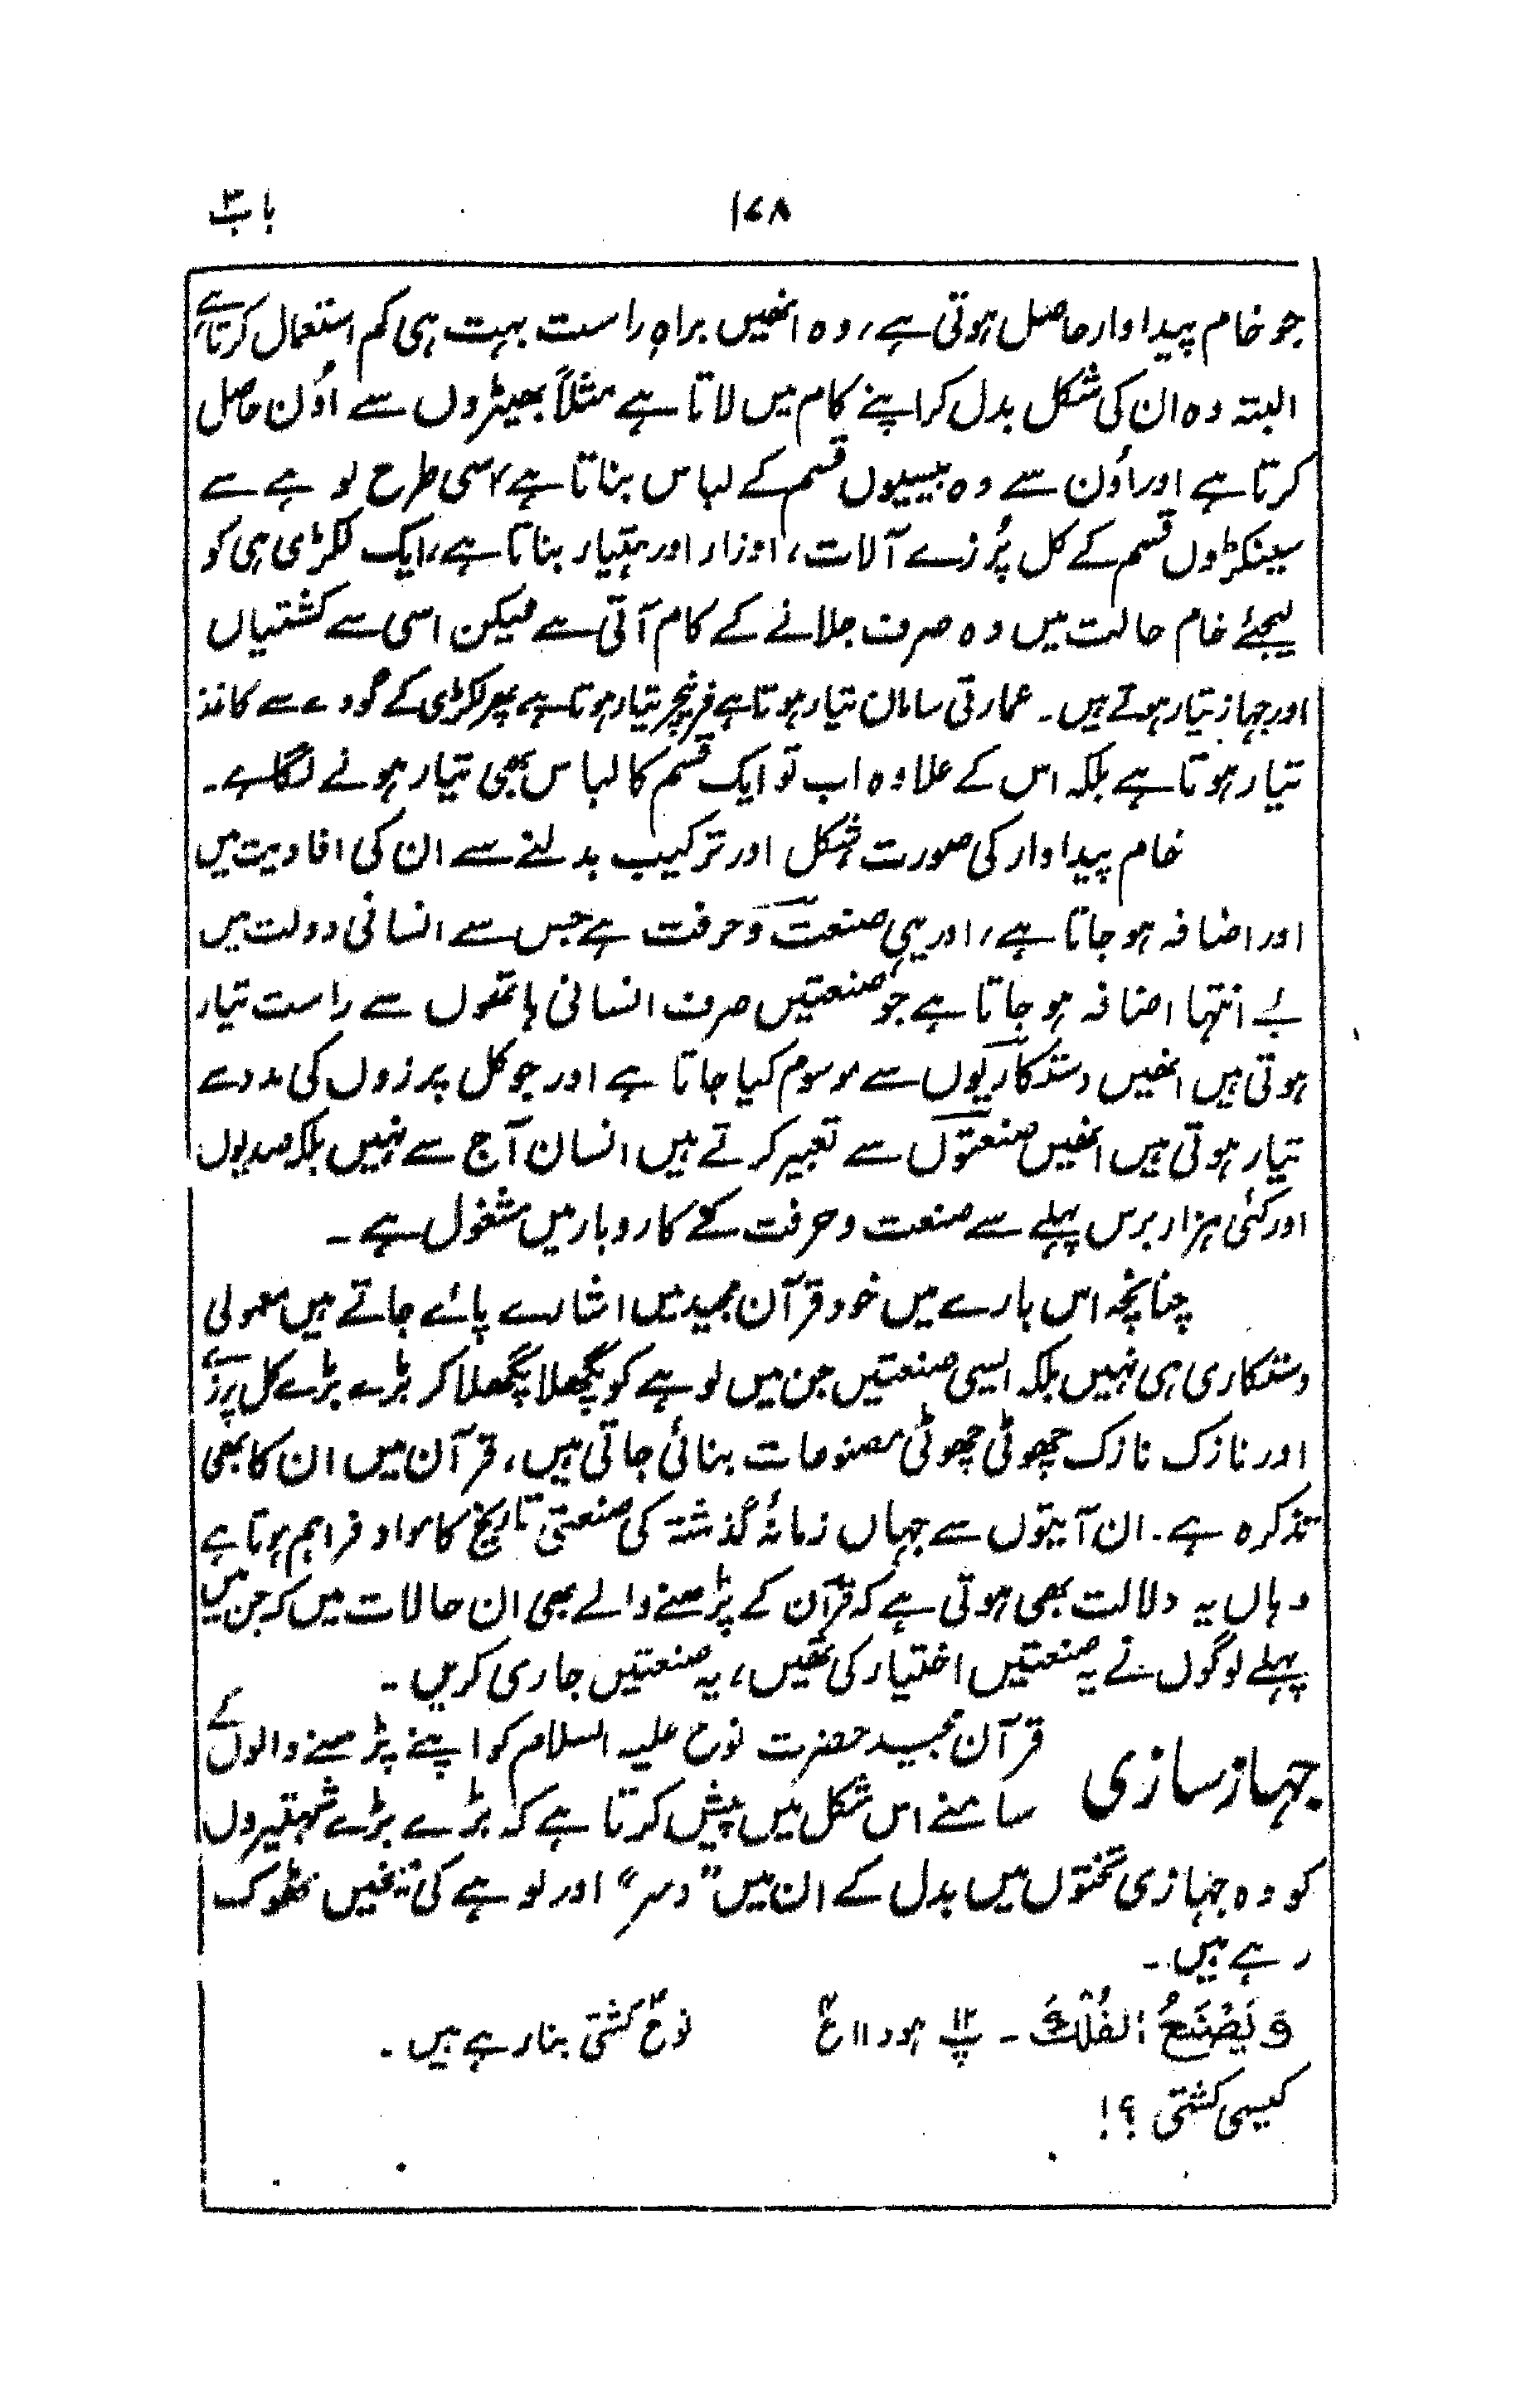 باب ۳ ۱۷۸
جو خام پیداوار حاصل ہوتی ہے، وہ انھیں براہِ راست بہت ہی کم استعمال کرتا ہے
البتہ وہ ان کی شکل بدل کر اپنے کام میں لاتا ہے مثلاً بھیڑوں سے اُون حاصل
کرتا ہے اور اُون سے وہ بیسیوں قسم کے لباس بناتا ہے، اسی طرح لوہے سے
سینکڑوں قسم کے کل پُرزے آلات، اوزار اور ہتیار بناتا ہے، ایک لکڑی ہی کو
لیجئے خام حالت میں وہ صرف جلانے کے کام آتی ہے لیکن اسی سے کشتیاں
اور جہاز تیار ہوتے ہیں۔ عمارتی سامان تیار ہوتا ہے فرنیچر تیار ہوتا ہے پھر لکڑی کے گودے سے کاغذ
تیار ہوتا ہے بلکہ اس کے علاوہ اب تو ایک قسم کا لباس بھی تیار ہونے لگا ہے۔
خام پیداوار کی صورت، شکل اور ترکیب بدلنے سے ان کی افادیت میں
اور اضافہ ہو جاتا ہے، اور یہی صنعت و حرفت ہے جس سے انسانی دولت میں
بے انتہا اضافہ ہو جاتا ہے جو صنعتیں صرف انسانی ہاتھوں سے راست تیار
ہوتی ہیں انھیں دستکاریوں سے موسوم کیا جاتا ہے اور جو کل پرزوں کی مدد سے
تیار ہوتی ہیں انھیں صنعتوں سے تعبیر کرتے ہیں انسان آج سے نہیں بلکہ صدیوں
اور کئی ہزار برس پہلے سے صنعت و حرفت کے کاروبار میں مشغول ہے۔
چنانچہ اس بارے میں خود قرآن مجید میں اشارے پائے جاتے ہیں معمولی
دستکاری ہی نہیں بلکہ ایسی صنعتیں جن میں لوہے کو پگھلا پگھلا کر بڑے بڑے کل پرزے
اور نازک نازک چھوٹی چھوٹی مصنوعات بنائی جاتی ہیں، قرآن میں ان کا بھی
تذکرہ ہے۔ ان آیتوں سے جہاں زمانۂ گذشتہ کی صنعتی تاریخ کا مواد فراہم ہوتا ہے
وہاں یہ دلالت بھی ہوتی ہے کہ قرآن کے پڑھنے والے بھی ان حالات میں کہ جن میں
پہلے لوگوں نے یہ صنعتیں اختیار کی تھیں، یہ صنعتیں جاری کریں۔
جہاز سازی قرآن مجید حضرت نوح علیہ السلام کو اپنے پڑھنے والوں کے
سامنے اس شکل میں پیش کرتا ہے کہ بڑے بڑے شہتیروں
کو وہ جہازی تختوں میں بدل کے ان میں ”دسر“ اور لوہے کی میخیں ٹھوک
رہے ہیں۔
وَيَصْنَعُ الْفُلْكَ۔ پ ۱۲ ہود ۱۱ ع ۴ نوحؑ کشتی بنا رہے ہیں۔
کیسی کشتی ؟!